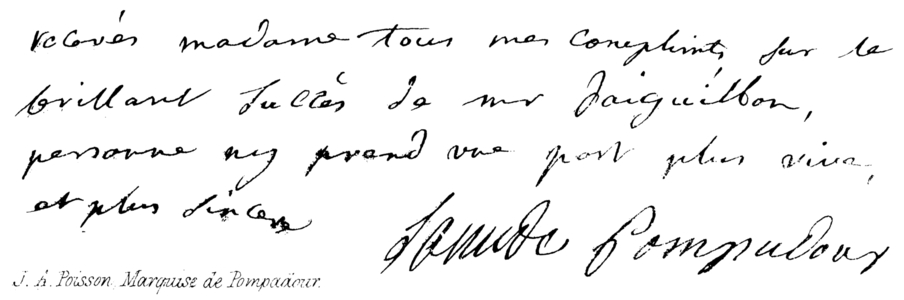 recevés madame tous mes complimts sur le
brillant succés de mr daiguillon,
personne ny prend une part plus vive,
et plus sincere
de Pompadour
J. A. Poisson, Marquise de Pompadour.